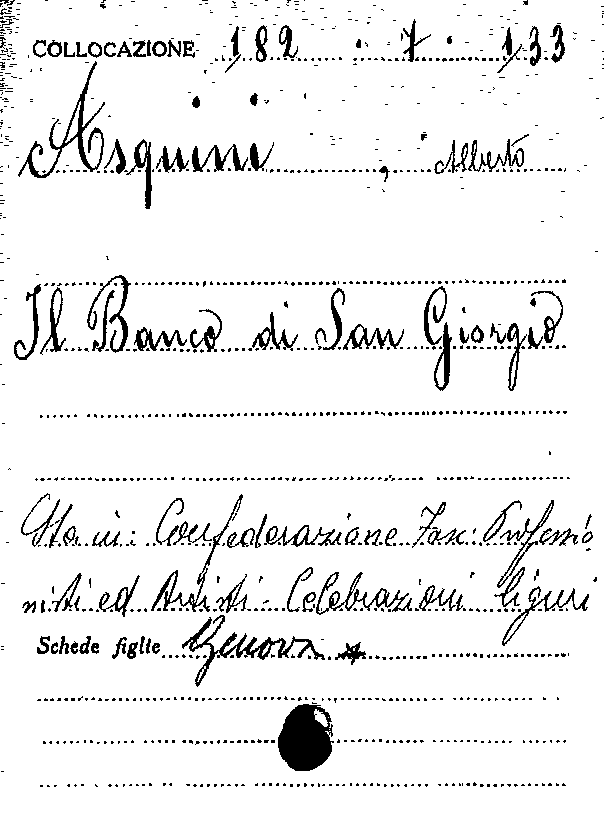 COLLOCAZIONE 182 . 7 . 133
Asquini , Alberto
Il Banco di San Giorgio
Sta in: Confederazione Fasc: Professio
nisti ed Artisti - Celebrazioni liguri
Schede figlie Genova *